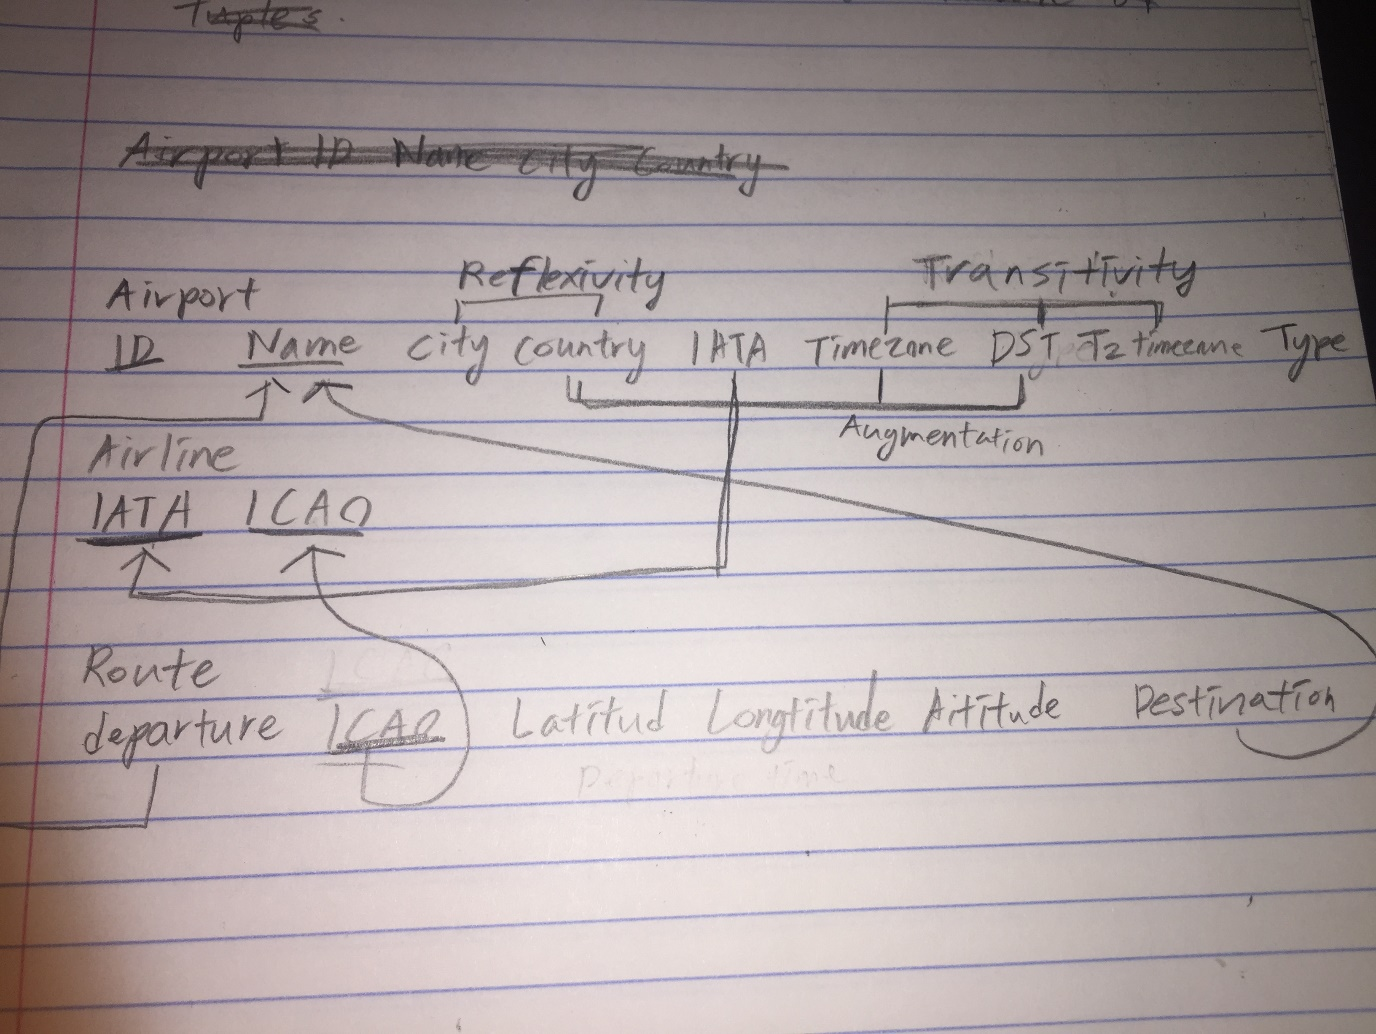 Tuples.
Airport ID Name City Country
Reflexivity Transitivity
Airport
ID Name City Country IATA Timezone DST Type
Augmentation
Airline
IATA ICAO
Route
departure ICAO Latitud Longtitude Aititude Destination